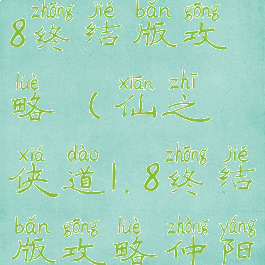 zhōng jié bǎn gōng
8终结版攻
luè xiān zhī
略(仙之
xiá dào zhōng jié
侠道1.8终结
bǎn gōng luè zhòng yáng
版攻略仲阳